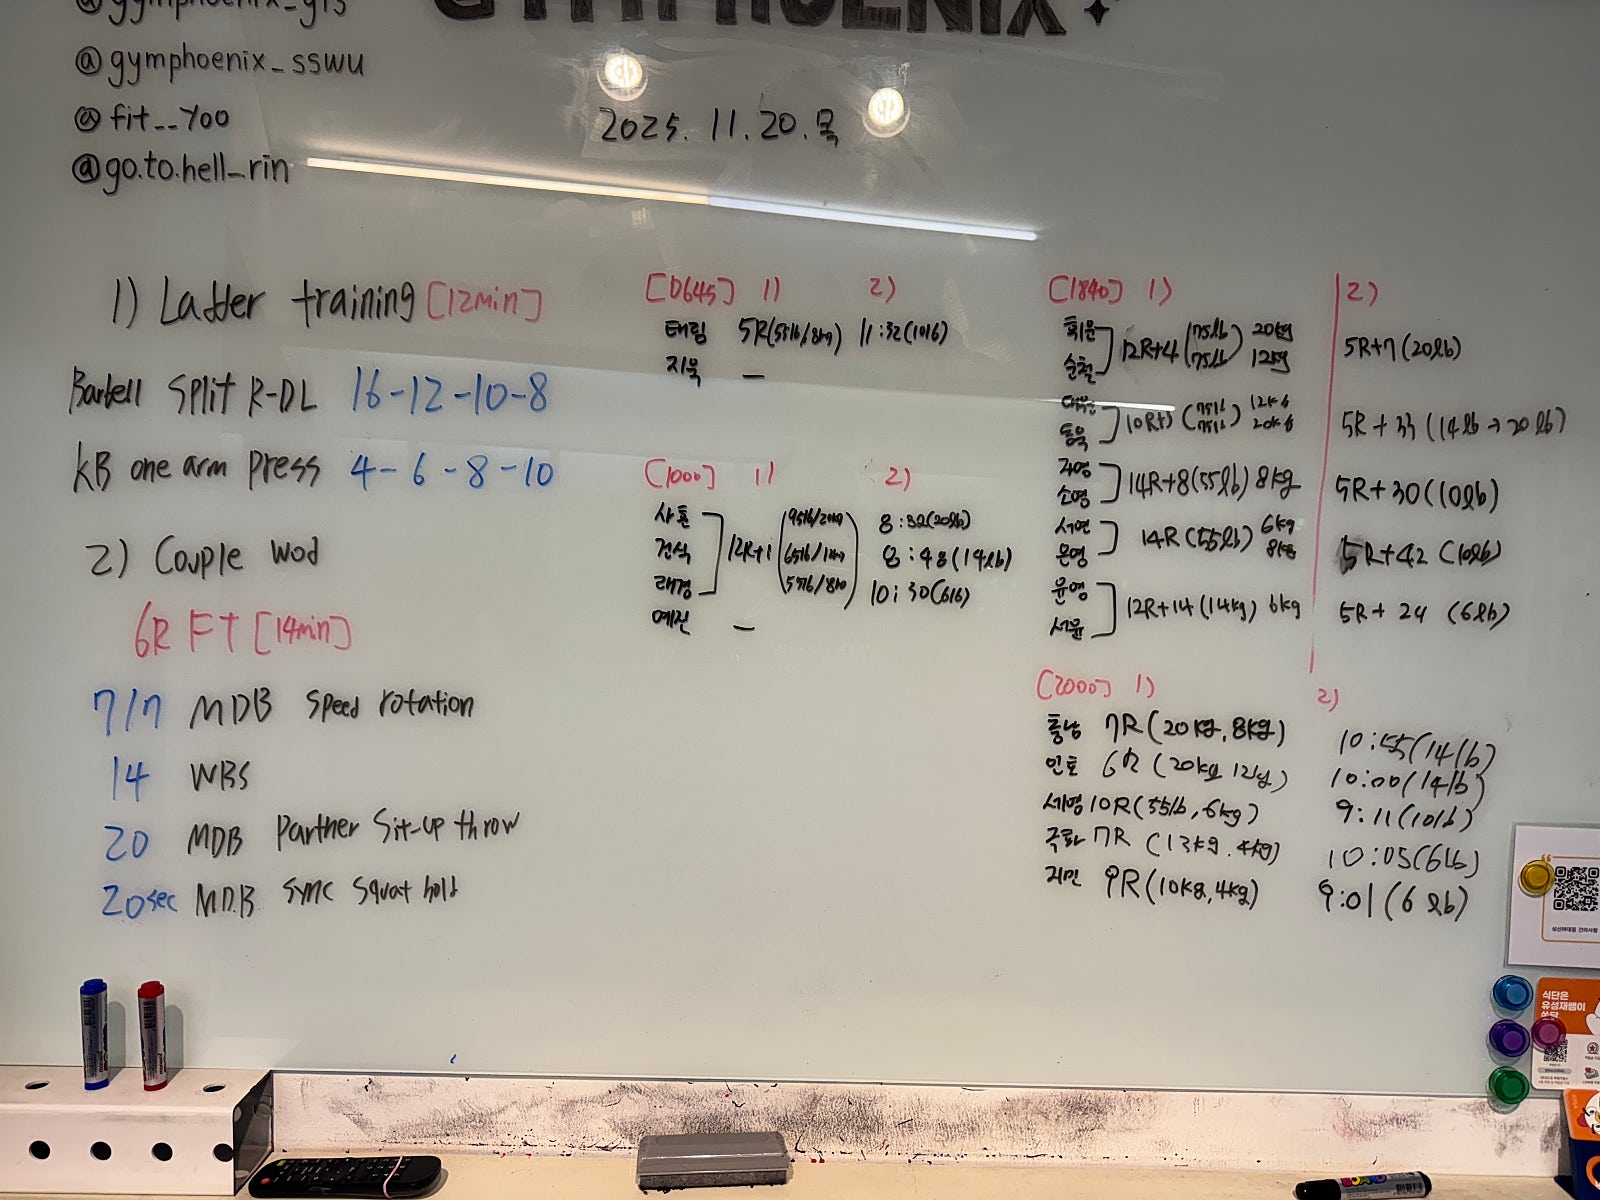 @gymphoenix_
GYMPHOENIX
@gymphoenix_sswu
@fit__yoo
@go.to.hell_rin
2025. 11. 20. 목
1) Ladder training [12min]
Barbell Split R-DL 16-12-10-8
KB one arm press 4-6-8-10
2) Couple wod
6R FT [14min]
7/7 MDB speed rotation
14 WBS
20 MDB Partner Sit-up throw
20sec MDB sync squat hold
[0645] 1) 2)
태림 5R(55lb/8kg) 11:32(10lb)
지욱 —
[1000] 1) 2)
사훈 12R+1 (95lb/20kg) 8:32(20lb)
건식 (65lb/12kg) 8:48(14lb)
래경 (55lb/8kg) 10:30(6lb)
예진 —
[1840] 1) 2)
희윤 12R+4 (75lb) 20kg 5R+7(20lb)
순철 (75lb) 12kg
10R+3 (75lb) 12kg 5R+33(14lb→20lb)
동욱 (75lb) 20kg
자영 14R+8(55lb) 8kg 5R+30(10lb)
소영
서연 14R(55lb) 6kg 5R+42(10lb)
은영 8kg
윤영 12R+14(14kg) 6kg 5R+24 (6lb)
서윤
[2000] 1) 2)
충남 7R(20kg, 8kg) 10:55(14lb)
인호 6R (20kg, 12kg) 10:00(14lb)
세영 10R(55lb, 6kg) 9:11(10lb)
국화 7R (13kg, 4kg) 10:05(6lb)
지민 9R(10kg, 4kg) 9:01(6lb)
성신여대점 건의사항
식단은
유성재쌤이
쏜닭
BOARD